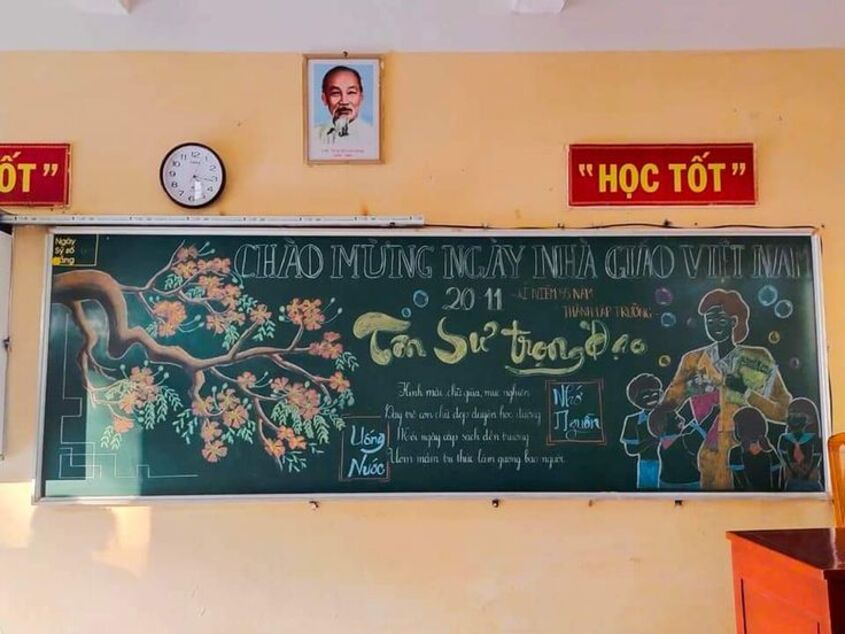 ỐT”
“HỌC TỐT”
Ngày
Sỹ số
Vắng
CHÀO MỪNG NGÀY NHÀ GIÁO VIỆT NAM
20 11 KỈ NIỆM 95 NĂM
THÀNH LẬP TRƯỜNG
Tôn Sư trọng Đạo
mài chữ giũa, mực nghiên
Dạy trẻ con chữ đẹp duyên học đường
Mỗi ngày cắp sách đến trường
Ươm mầm tri thức làm gương bao người
Uống
Nước
Nhớ
Nguồn